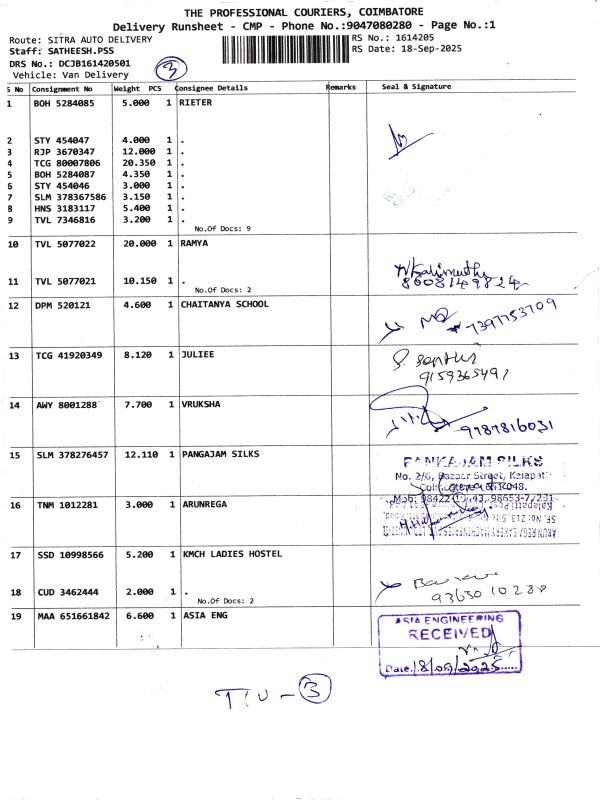 THE PROFESSIONAL COURIERS, COIMBATORE
Delivery Runsheet - CMP - Phone No.:9047080280 - Page No.:1
Route: SITRA AUTO DELIVERY
RS No.: 1614205
Staff: SATHEESH.PSS
RS Date: 18-Sep-2025
DRS No.: DCJB161420501
Vehicle: Van Delivery
3
S No Consignment No Weight PCS Consignee Details Remarks Seal & Signature
1 BOH 5284085 5.000 1 RIETER
2 STY 454047 4.000 1 .
3 RJP 3670347 12.000 1 .
4 TCG 80007806 20.350 1 .
5 BOH 5284087 4.350 1 .
6 STY 454046 3.000 1 .
7 SLM 378367586 3.150 1 .
8 HNS 3183117 5.400 1 .
9 TVL 7346816 3.200 1 .
No.Of Docs: 9
10 TVL 5077022 20.000 1 RAMYA
11 TVL 5077021 10.150 1 .
No.Of Docs: 2
8608149824
12 DPM 520121 4.600 1 CHAITANYA SCHOOL
7397753709
13 TCG 41920349 8.120 1 JULIEE
9159365491
14 AWY 8001288 7.700 1 VRUKSHA
9787816031
15 SLM 378276457 12.110 1 PANGAJAM SILKS
PANKAJAM SILKS
No. 2/6, Bazaar Street, Kalapatti
16 TNM 1012281 3.000 1 ARUNREGA
17 SSD 10998566 5.200 1 KMCH LADIES HOSTEL
18 CUD 3462444 2.000 1 .
No.Of Docs: 2
19 MAA 651661842 6.600 1 ASIA ENG
ASIA ENGINEERING
RECEIVED
Date. 18/09/2025
3